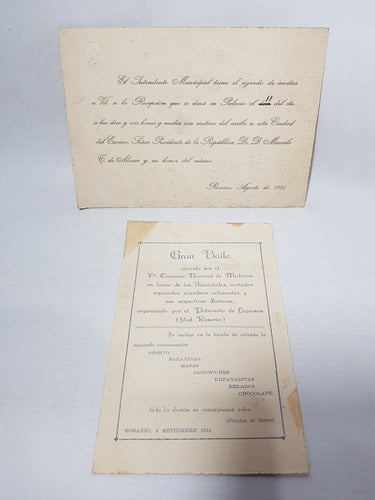 El Intendente Municipal tiene el agrado de invitar
a Vd. a la Recepción que se dará en Palacio el 11 del cte.
a las diez y seis horas y media con motivo del arribo a esta Ciudad
del Excmo. Señor Presidente de la República, Dr. D. Marcelo
T. de Alvear y en honor del mismo.
Rosario, Agosto de 192
Gran Baile
ofrecido por el
Vº Congreso Nacional de Medicina
en honor de las Autoridades, invitados
especiales, miembros adherentes y
sus respectivas Señoras,
organizado por el Patronato de Leprosos
(filial Rosario)
Se incluye en la tarjeta de entrada la
siguiente consumación:
OPORTO
NARANJADA
MASAS
SANDWICHES
EMPANADITAS
HELADOS
CHOCOLATE
todo lo demás se considerará extra
(Precios al dorso)
ROSARIO, 8 SETIEMBRE 1934.